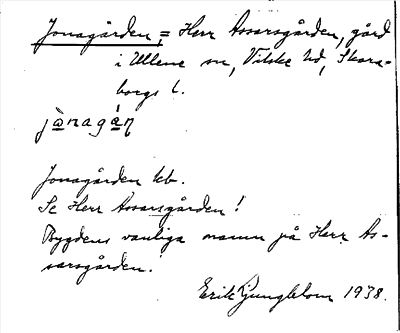 Jonagården, = Herr Assarsgården, gård
i Ullene sn, Vilske hd, Skara-
borgs l.
jànagán
Jonagården kb.
Se Herr Assarsgården!
Bygdens vanliga namn på Herr As-
sarsgården.
Erik Ljungblom 1938.